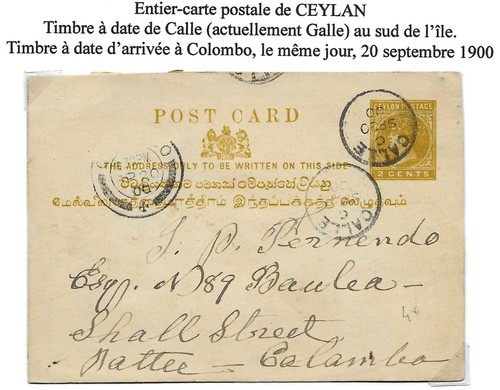 Entier-carte postale de CEYLAN
Timbre à date de Calle (actuellement Galle) au sud de l'île.
Timbre à date d'arrivée à Colombo, le même jour, 20 septembre 1900
POST CARD
CEYLON POSTAGE
2 CENTS
CALLE
THE ADDRESS ONLY TO BE WRITTEN ON THIS SIDE
மேல்விலாசமாத்திரம் இந்தப்பக்கத்தில் எழுதவும்
CALLE
J. P. Pernendo
Esq. N 89 Baulea -
Shall Street
- Colambo